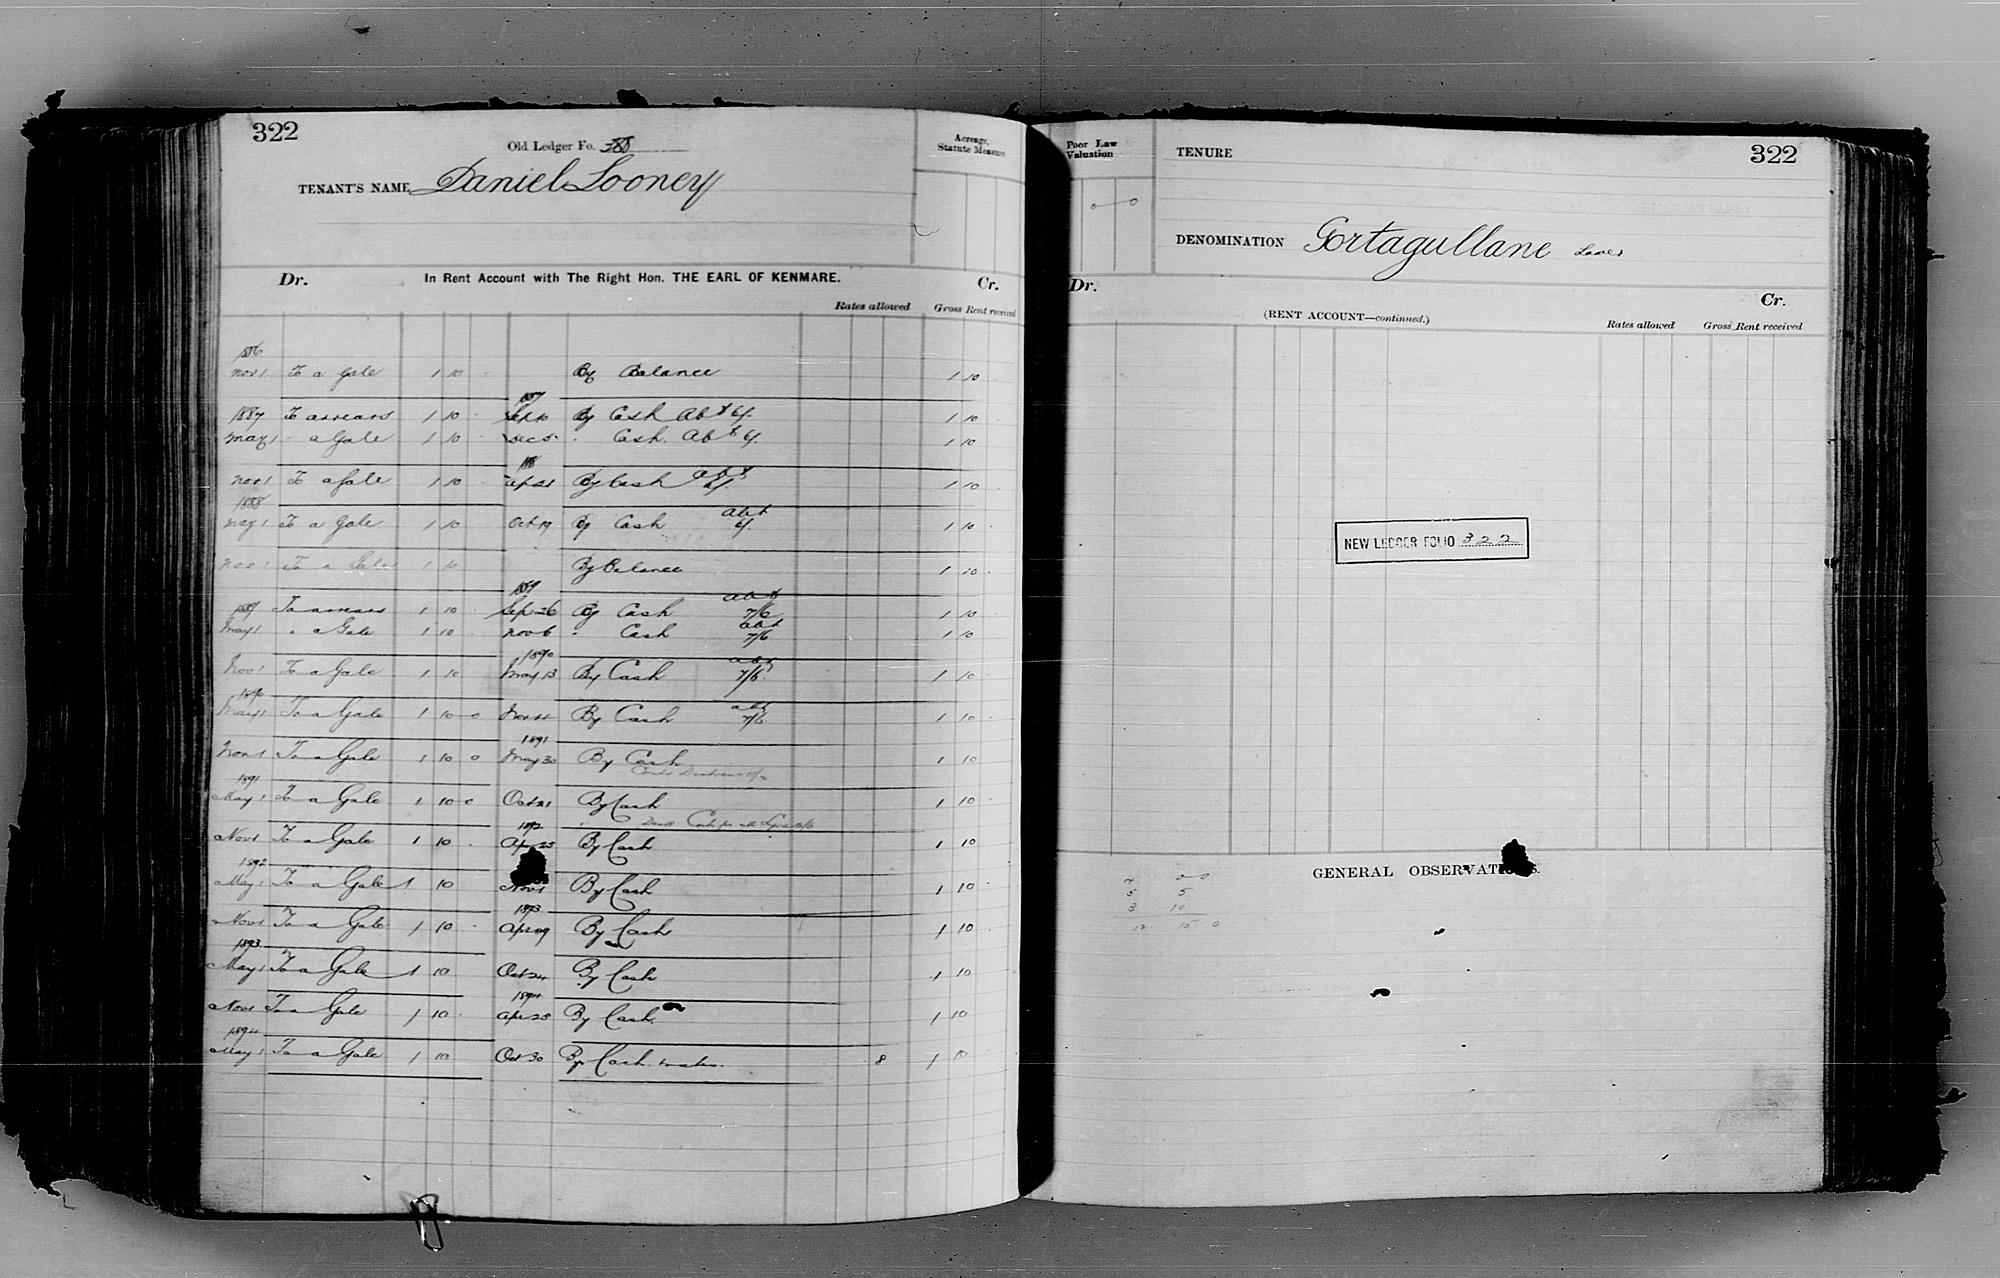 322
Old Ledger Fo.
Acreage, Statute Measure
TENANT'S NAME Daniel Looney
Dr. In Rent Account with The Right Hon. THE EARL OF KENMARE. Cr.
Rates allowed Gross Rent received
1886
Nov 1 To a Gale 1 10 - By Balance 1 10
1887
1887 To arrears 1 10 - Sep 10 By Cash Abt 6/. 1 10
May 1 " a Gale 1 10 - Dec 5 " Cash. Abt 6/. 1 10
188
Nov 1 To a Gale 1 10 - Ap 21 By Cash abt 6/. 1 10
1888
May 1 To a Gale 1 10 Oct 19 By Cash abt 6/. 1 10
Nov 1 To a Gale 1 10 By Balance 1 10
1889
1889 To arrears 1 10 - Sep 26 By Cash abt 7/6 1 10
May 1 " a Gale 1 10 - Nov 6 " Cash abt 7/6 1 10
1890
Nov 1 To a Gale 1 10 May 13 By Cash abt 7/6 1 10
1890
May 1 To a Gale 1 10 0 Nov 11 By Cash abt 7/6 1 10
1891
Nov 1 To a Gale 1 10 0 May 30 By Cash 1 10
1891
May 1 To a Gale 1 10 0 Oct 21 By Cash 1 10
1892
Nov 1 To a Gale 1 10 - Apr 25 By Cash 1 10
1892
May 1 To a Gale 1 10 Nov 1 By Cash 1 10
1893
Nov 1 To a Gale 1 10 - Apr 29 By Cash 1 10
1893
May 1 To a Gale 1 10 Oct 24 By Cash 1 10
1894
Nov 1 To a Gale 1 10 - Apr 28 By Cash 1 10
1894
May 1 To a Gale 1 10 Oct 30 By Cash & rates. 8 1 10
Poor Law Valuation
TENURE 322
DENOMINATION Gortagullane Lower
Dr. Cr.
(RENT ACCOUNT—continued.)
Rates allowed Gross Rent received
NEW LEDGER FOLIO 322
GENERAL OBSERVATIONS.
4 0 0
5 5
3 10
12 15 0